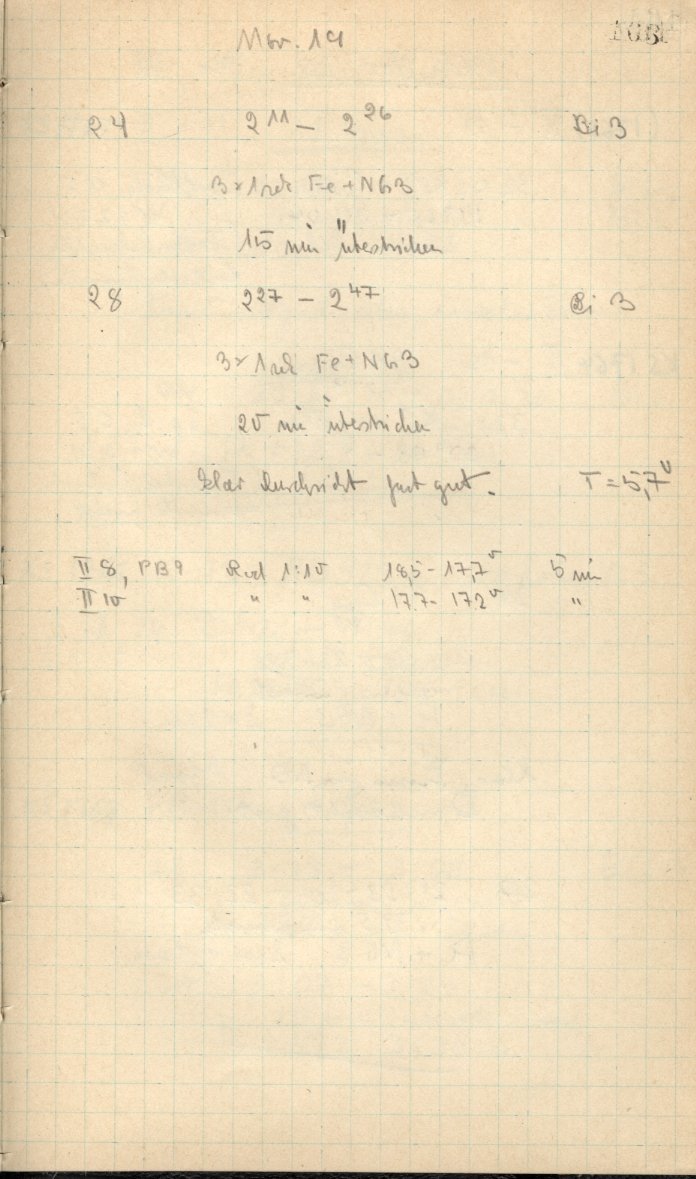 Nov. 19
24 2¹¹ – 2²⁶ Bi 3
3 × 1 Fe + Nb3
15 min überstrichen
28 2²⁷ – 2⁴⁷ Bi 3
3 × 1 Fe + Nb3
20 min überstrichen
Klar Durchsicht fast gut. T = 5,7°
II 8, PB9 Rod 1:10 18,5 – 17,7° 5 min
II 10 " " 17.7 – 17.2° "